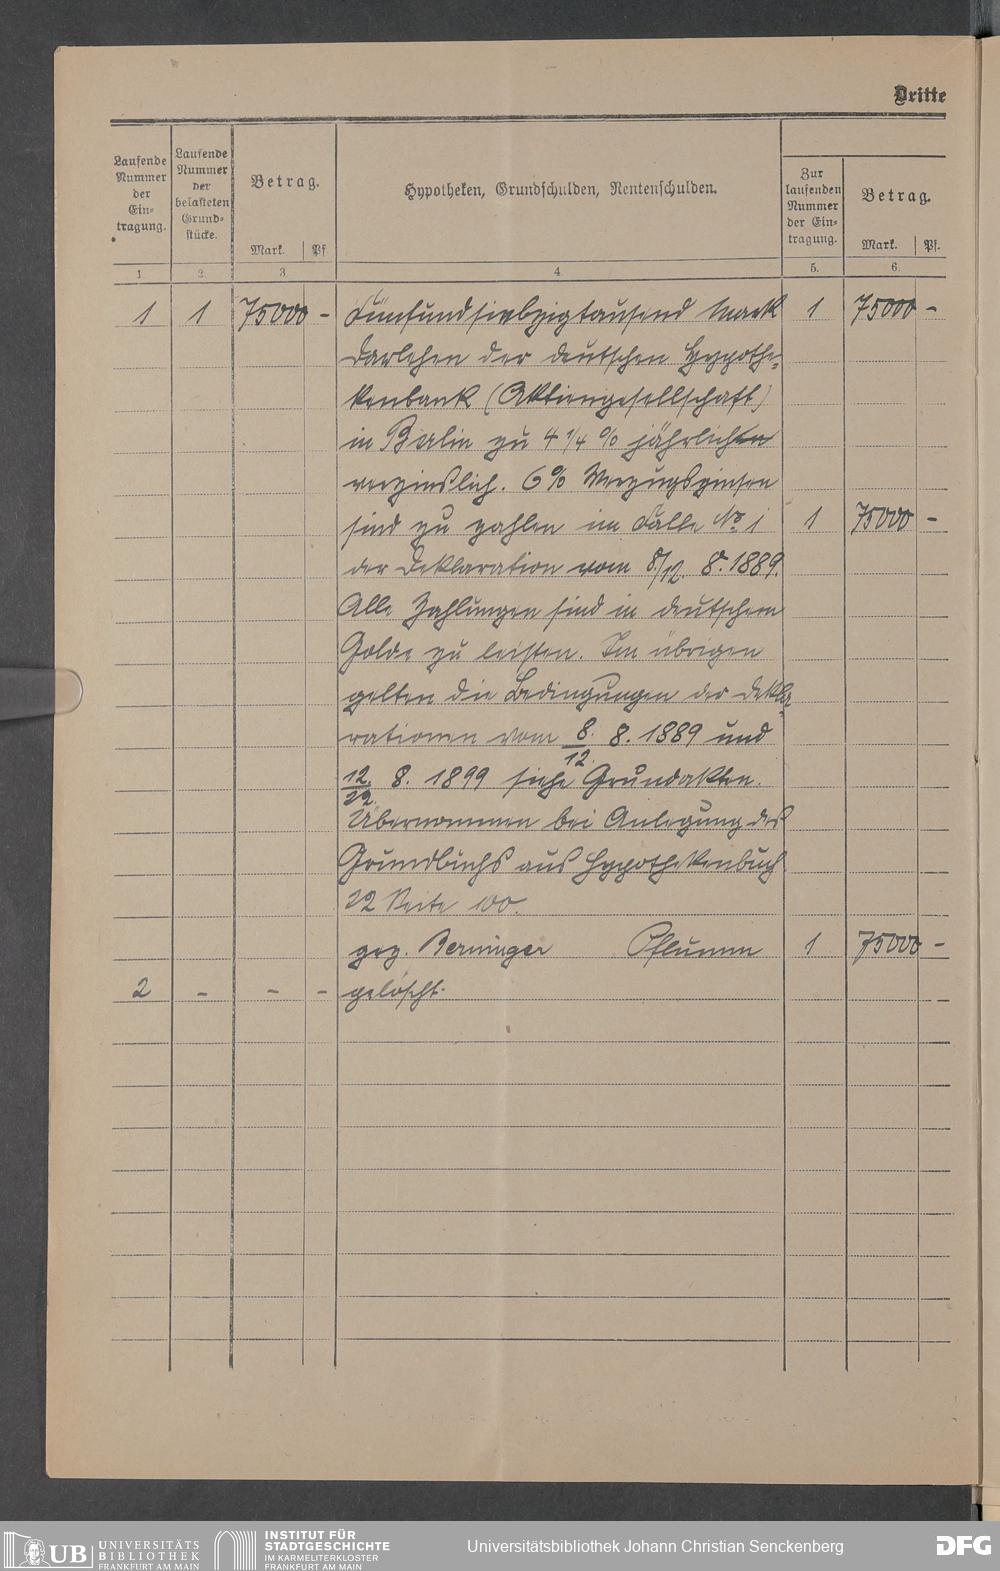 Dritte
Laufende Nummer der Ein- tragung.
Laufende Nummer der belasteten Grund- stücke.
Betrag.
Mark. Pf.
Hypotheken, Grundschulden, Rentenschulden.
Zur laufenden Nummer der Ein- tragung.
Betrag.
Mark. Pf.
1. 2. 3 4. 5. 6.
1 1 75000 - Fünfundsiebzigtausend Mark 1 75000 -
Darlehen der deutschen Hypothe-
kenbank (Aktiengesellschaft)
in Berlin zu 4 1/4 % jährlich
verzinslich. 6% Verzugszinsen
sind zu zahlen im Falle No 1 1 75000 -
der Deklaration vom 8/12. 8. 1889.
Alle Zahlungen sind in deutschem
Golde zu leisten. Im übrigen
gelten die Bedingungen der Dekla-
rationen vom 8./12. 8. 1889 und
12./22. 8. 1899 siehe Grundakten.
Übernommen bei Anlegung des
Grundbuchs aus Hypothekenbuch
22 Seite 100.
gez. Berninger Pflumm 1 75000 -
2 - - - gelöscht.
UB UNIVERSITÄTS
BIBLIOTHEK
FRANKFURT AM MAIN
INSTITUT FÜR
STADTGESCHICHTE
IM KARMELITERKLOSTER
FRANKFURT AM MAIN
Universitätsbibliothek Johann Christian Senckenberg
DFG